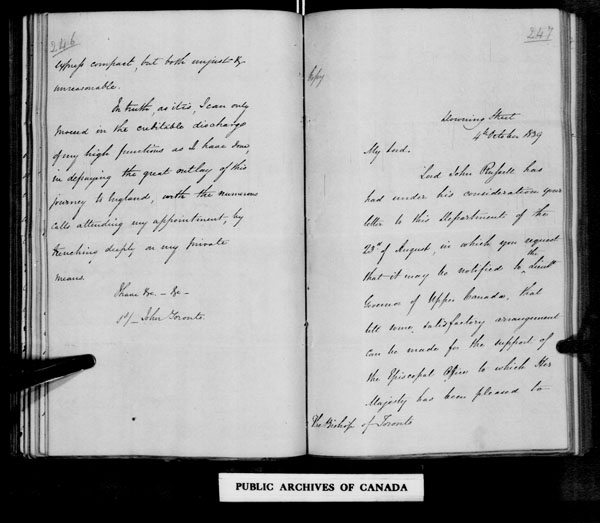 246
express compact, but both unjust &
unreasonable.
In truth, as it is, I can only
proceed in the creditable discharge
of my high functions as I have done,
in defraying the great outlay of this
journey to England, with the numerous
calls attending my appointment, by
trenching deeply on my private
means.
I have &c. - &c -
John Toronto.
247
Copy
Downing Street
4th October 1839
My Lord.
Lord John Russell has
had under his consideration your
letter to this Department of the
23d of August, in which you request
that it may be notified to the Lieutt
Governor of Upper Canada, that
till some satisfactory arrangement
can be made for the support of
the Episcopal Office to which Her
Majesty has been pleased to
The Bishop of Toronto
PUBLIC ARCHIVES OF CANADA